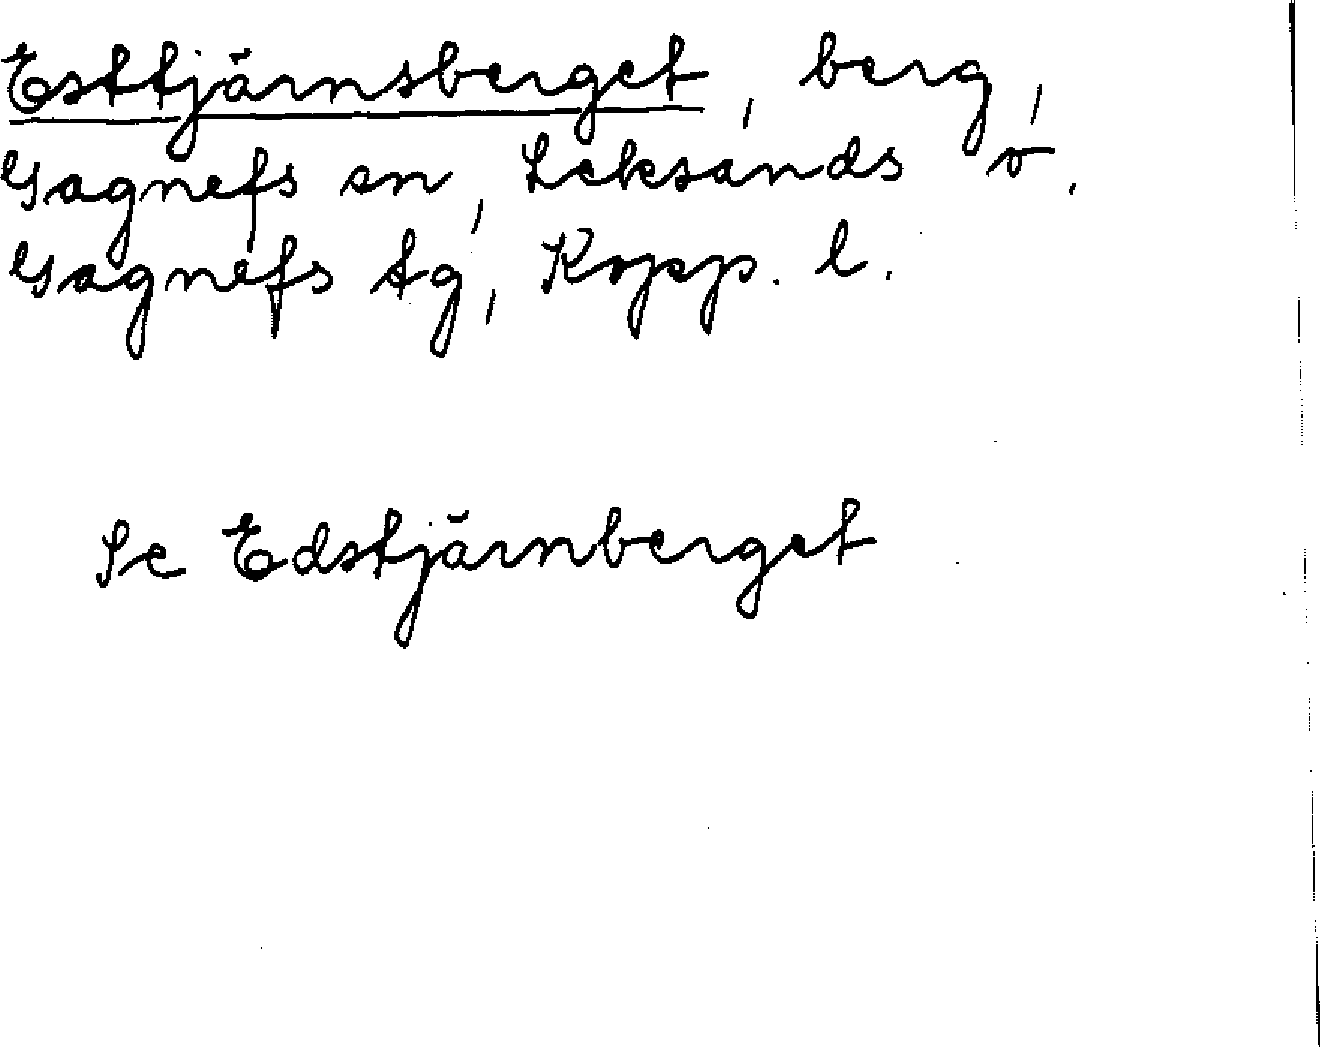 Esttjärnsberget, berg,
Gagnefs sn, Leksands o.
Gagnefs tg, Kopp. l.
Se Edstjärnberget